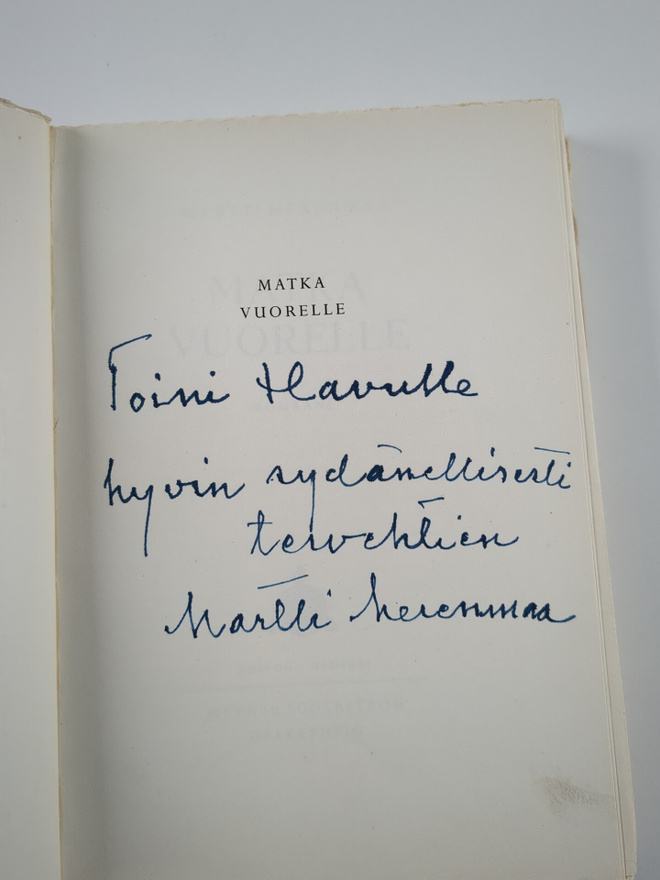 MATKA
VUORELLE
Toini Havulle
hyvin sydämellisesti
tervehtien
Martti Merenmaa